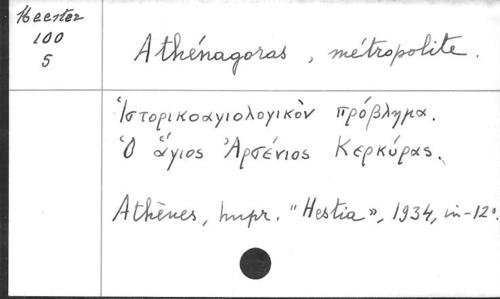 Meester
100
5
Athénagoras, métropolite.
Ἱστορικοαγιολογικὸν πρόβλημα.
Ὁ ἅγιος Ἀρσένιος Κερκύρας.
Athènes, Impr. "Hestia", 1934, in-12º.